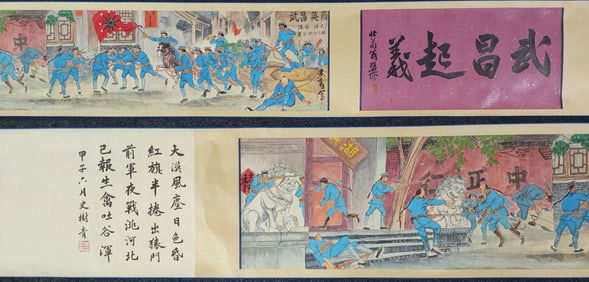 武昌起義
中
中正仁
大漠風塵日色昏
紅旗半捲出轅門
前軍夜戰洮河北
已報生禽吐谷渾
甲子六月史樹青